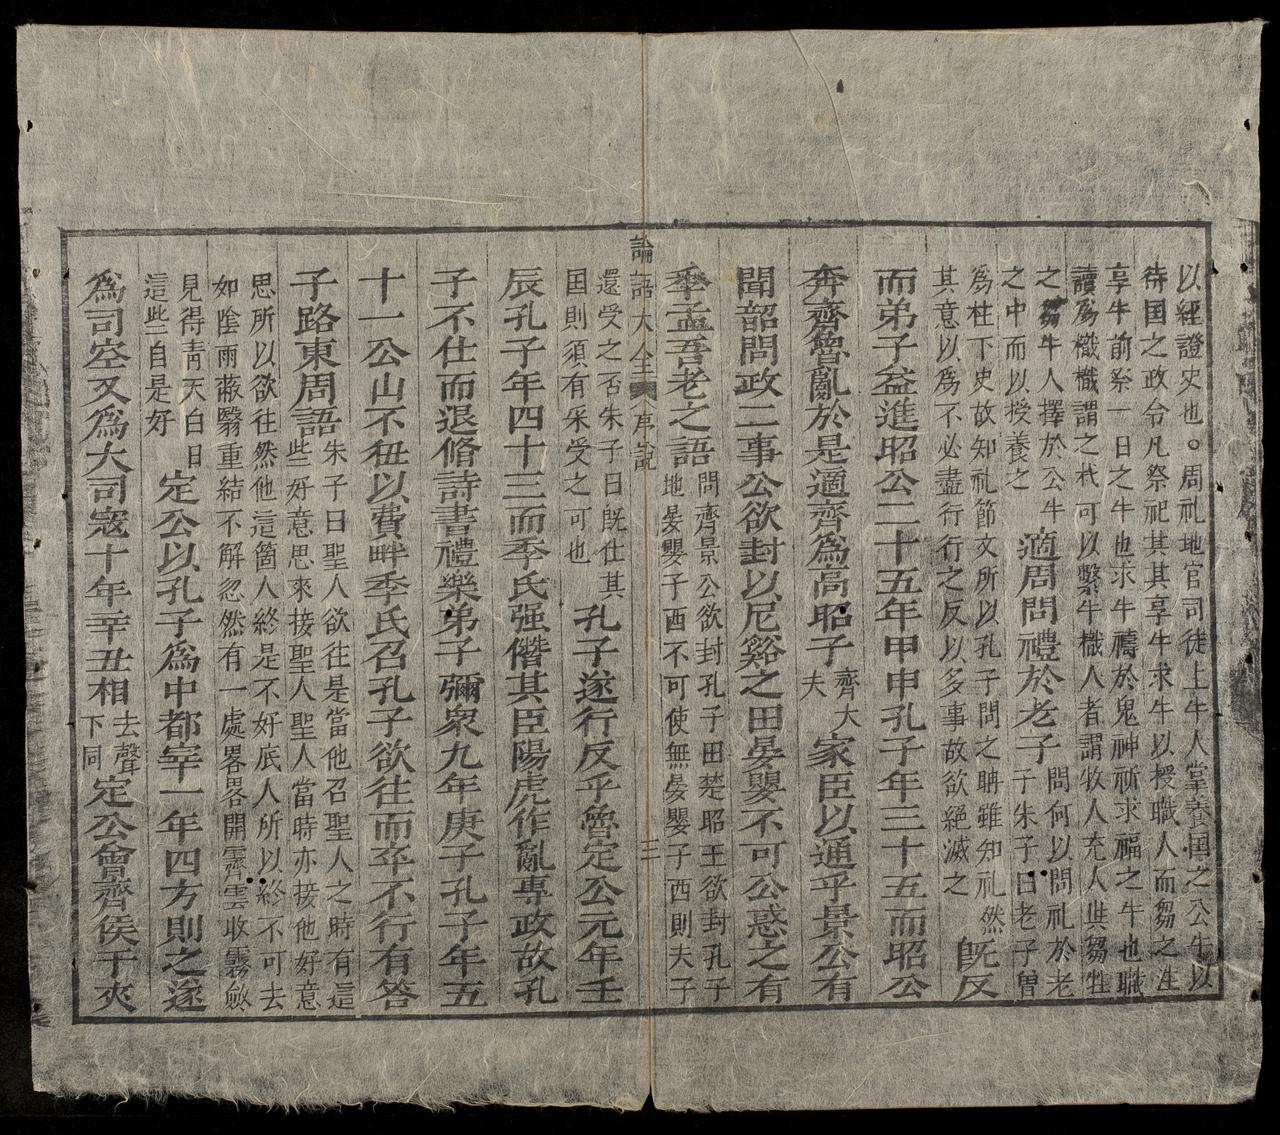 以經證史也○周礼地官司徒上牛人掌養国之公牛以
待国之政令凡祭祀共其享牛求牛以授職人而芻之注
享牛前祭一日之牛也求牛禱於鬼神祈求福之牛也職
讀爲樴樴謂之杙可以繫牛樴人者謂牧人充人與芻牲
之芻牛人擇於公牛
之中而以授養之
適周問禮於老子
問何以問礼於老
子朱子曰老子曽
爲柱下史故知礼節文所以孔子問之聃雖知礼然
其意以爲不必盡行行之反以多事故欲絕滅之
旣反
而弟子益進昭公二十五年甲申孔子年三十五而昭公
奔齊魯亂於是適齊爲高昭子
齊大
夫
家臣以通乎景公有
聞韶問政二事公欲封以尼谿之田晏嬰不可公惑之有
季孟吾老之語
問齊景公欲封孔子田楚昭王欲封孔子
地晏嬰子西不可使無晏嬰子西則夫子
論語大全 序說 三
還受之否朱子曰旣仕其
国則須有采受之可也
孔子遂行反乎魯定公元年壬
辰孔子年四十三而季氏强僭其臣陽虎作亂專政故孔
子不仕而退脩詩書禮樂弟子彌衆九年庚子孔子年五
十一公山不狃以費畔季氏召孔子欲往而卒不行有答
子路東周語
朱子曰聖人欲往是當他召聖人之時有這
些好意思來接聖人聖人當時亦接他好意
思所以欲往然他這箇人終是不好底人所以終不可去
如陰雨蔽翳重結不解忽然有一處畧畧開霽雲收霧斂
見得靑天白日
這些自是好
定公以孔子爲中都宰一年四方則之遂
爲司空又爲大司寇十年辛丑相
去聲
下同
定公會齊侯于夾